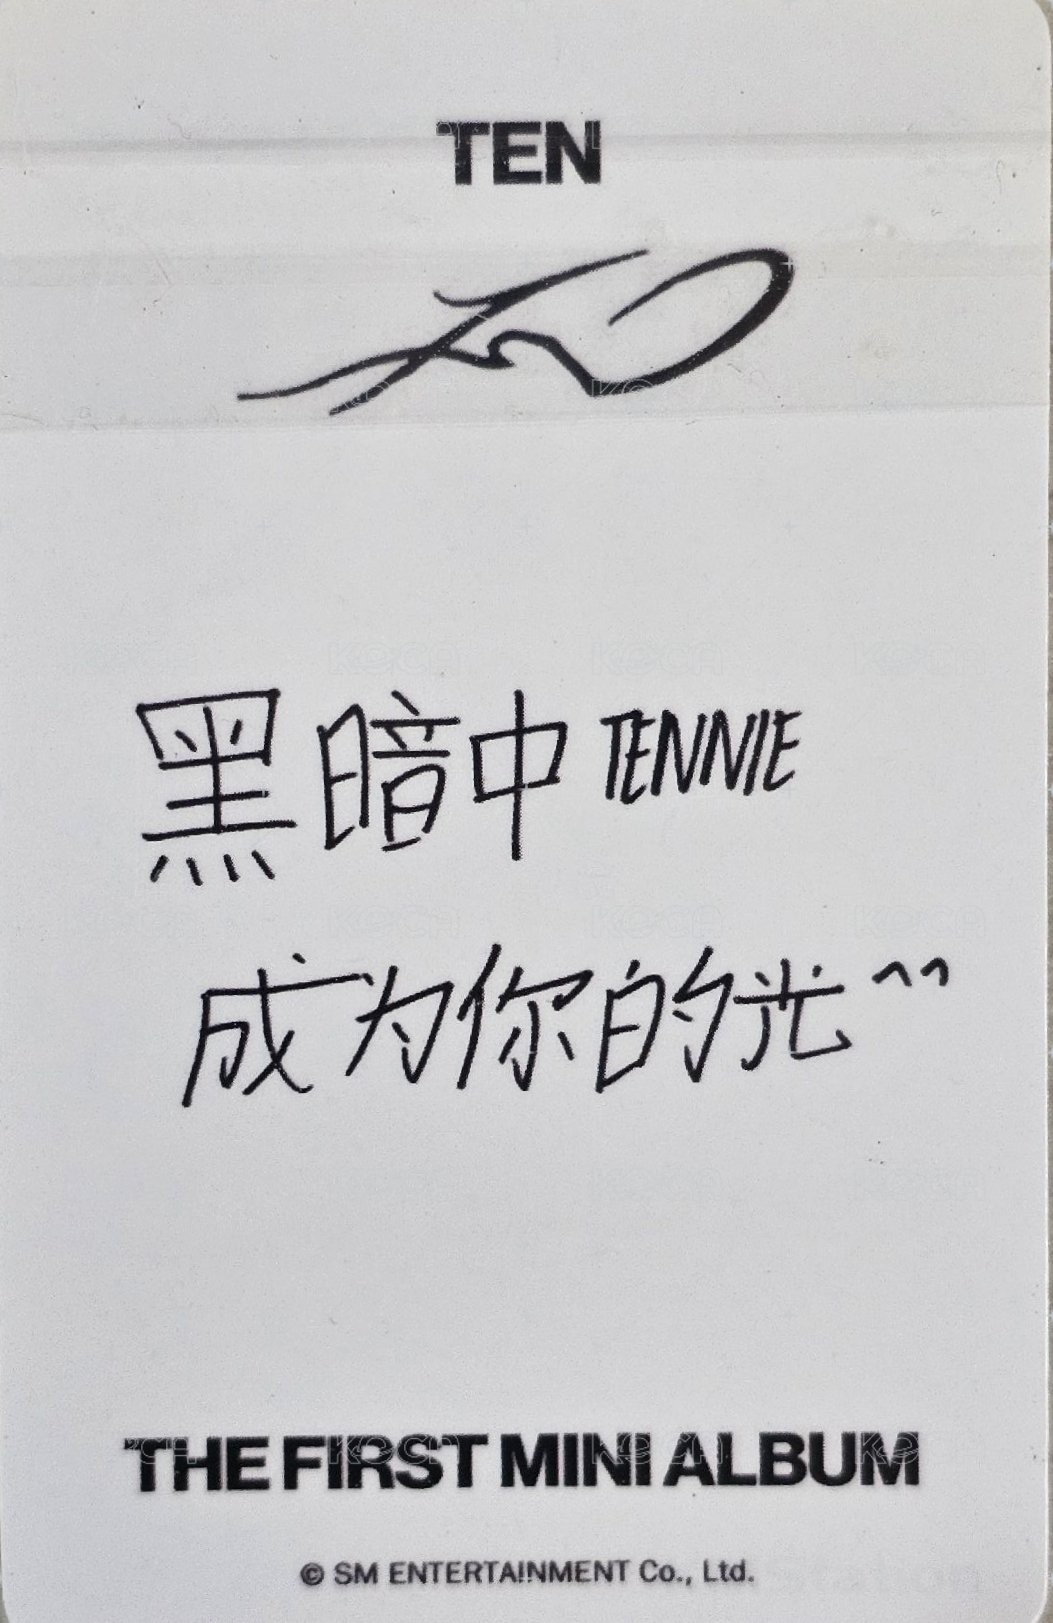 TEN
黑暗中 TENNIE
成为你的光 ^^
THE FIRST MINI ALBUM
© SM ENTERTAINMENT Co., Ltd.